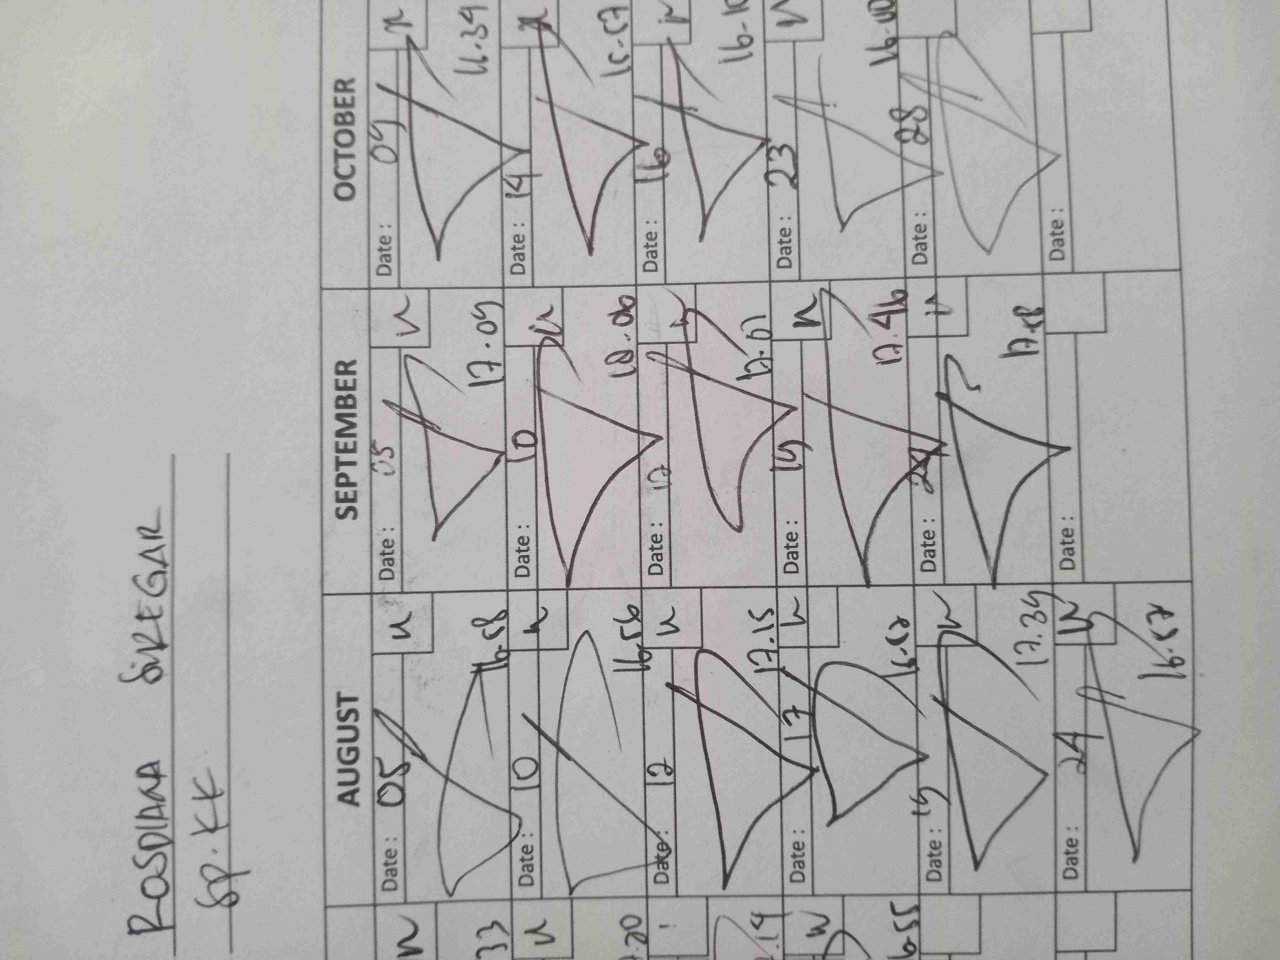 ROSDIANA SIREGAR
SP.KK
AUGUST SEPTEMBER OCTOBER
Date : 05 Date : 05 Date : 09
16.58 17.09 16.39
Date : 10 Date : 10 Date : 14
16.56 18.00
Date : 12 Date : 17 Date : 16
17.15 17.07 16.10
Date : 17 Date : 19 Date : 23
16.57 17.46 16.00
Date : 19 Date : 24 Date : 28
17.39 17.18
Date : 24 Date : Date :
16.57